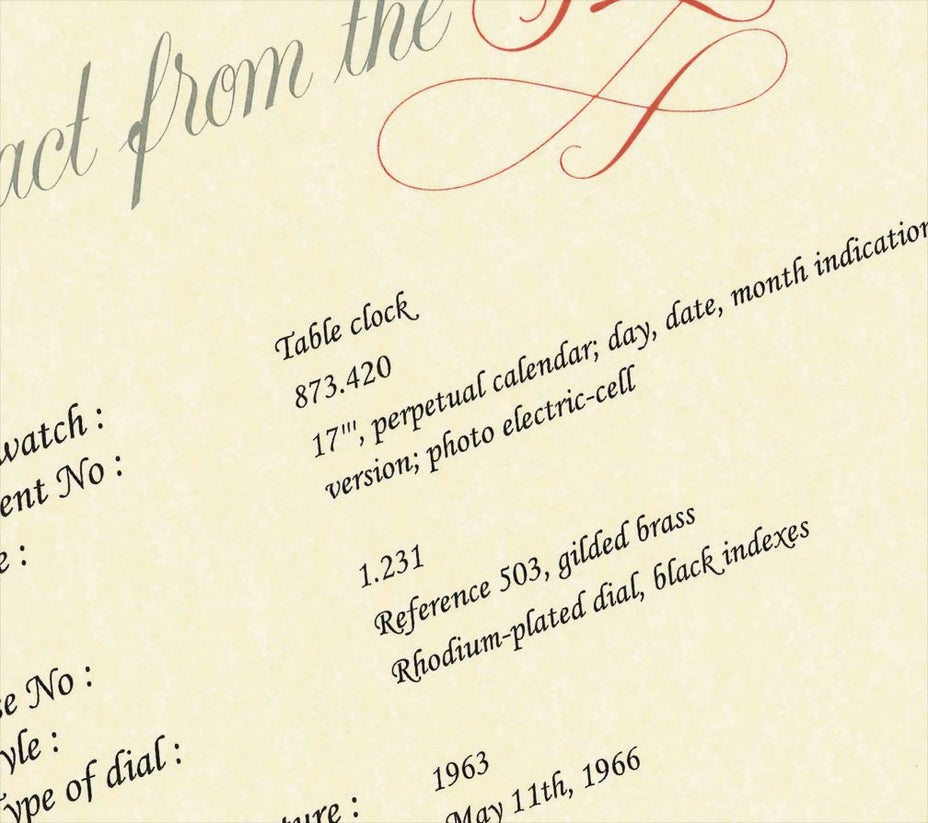 act from the
watch : Table clock
ent No : 873.420
e : 17''', perpetual calendar; day, date, month indication
version; photo electric-cell
se No : 1.231
yle : Reference 503, gilded brass
Type of dial : Rhodium-plated dial, black indexes
ture : 1963
May 11th, 1966